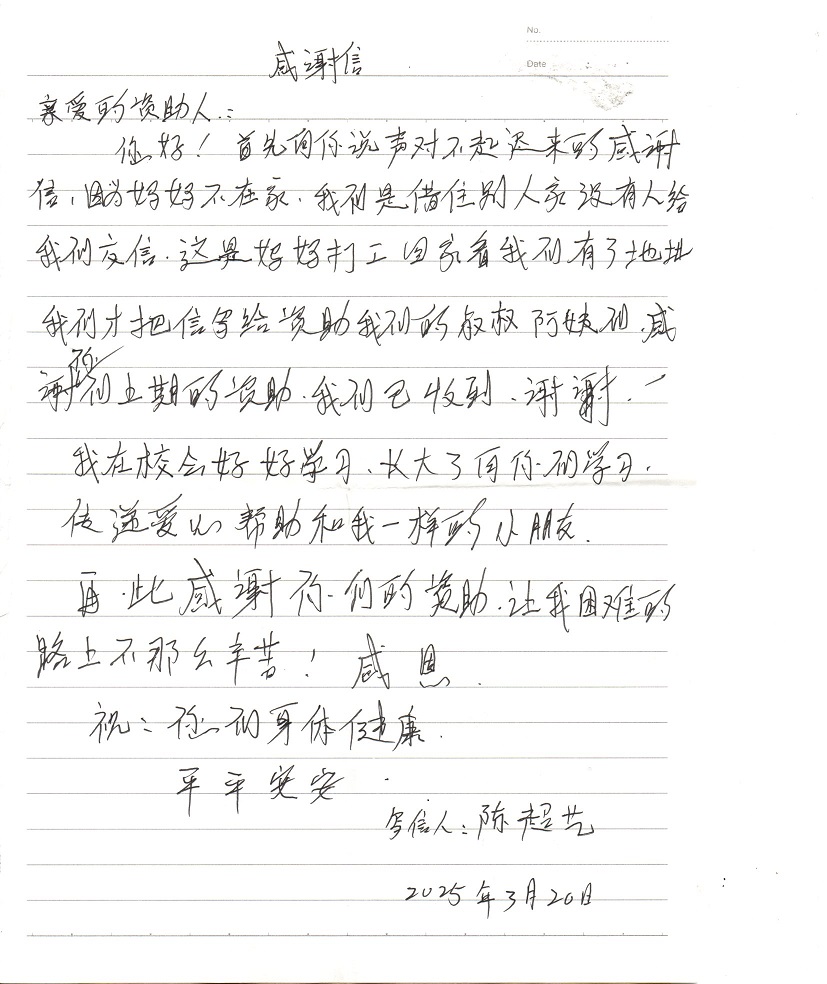 No.
Date
感谢信
亲爱的资助人：
您好！首先向你说声对不起迟来的感谢
信，因为妈妈不在家．我们是借住别人家没有人给
我们交信．这是妈妈打工回家看我们有了地址
我们才把信写给资助我们的叔叔阿姨们．感
谢你们上期的资助．我们已收到、谢谢．
我在校会好好学习、长大了向你们学习．
传递爱心帮助和我一样的小朋友．
再．此感谢你们的资助．让我困难的
路上不那么辛苦！感恩．
祝：您们身体健康．
平平安安．
写信人：陈超艺
2025年3月20日